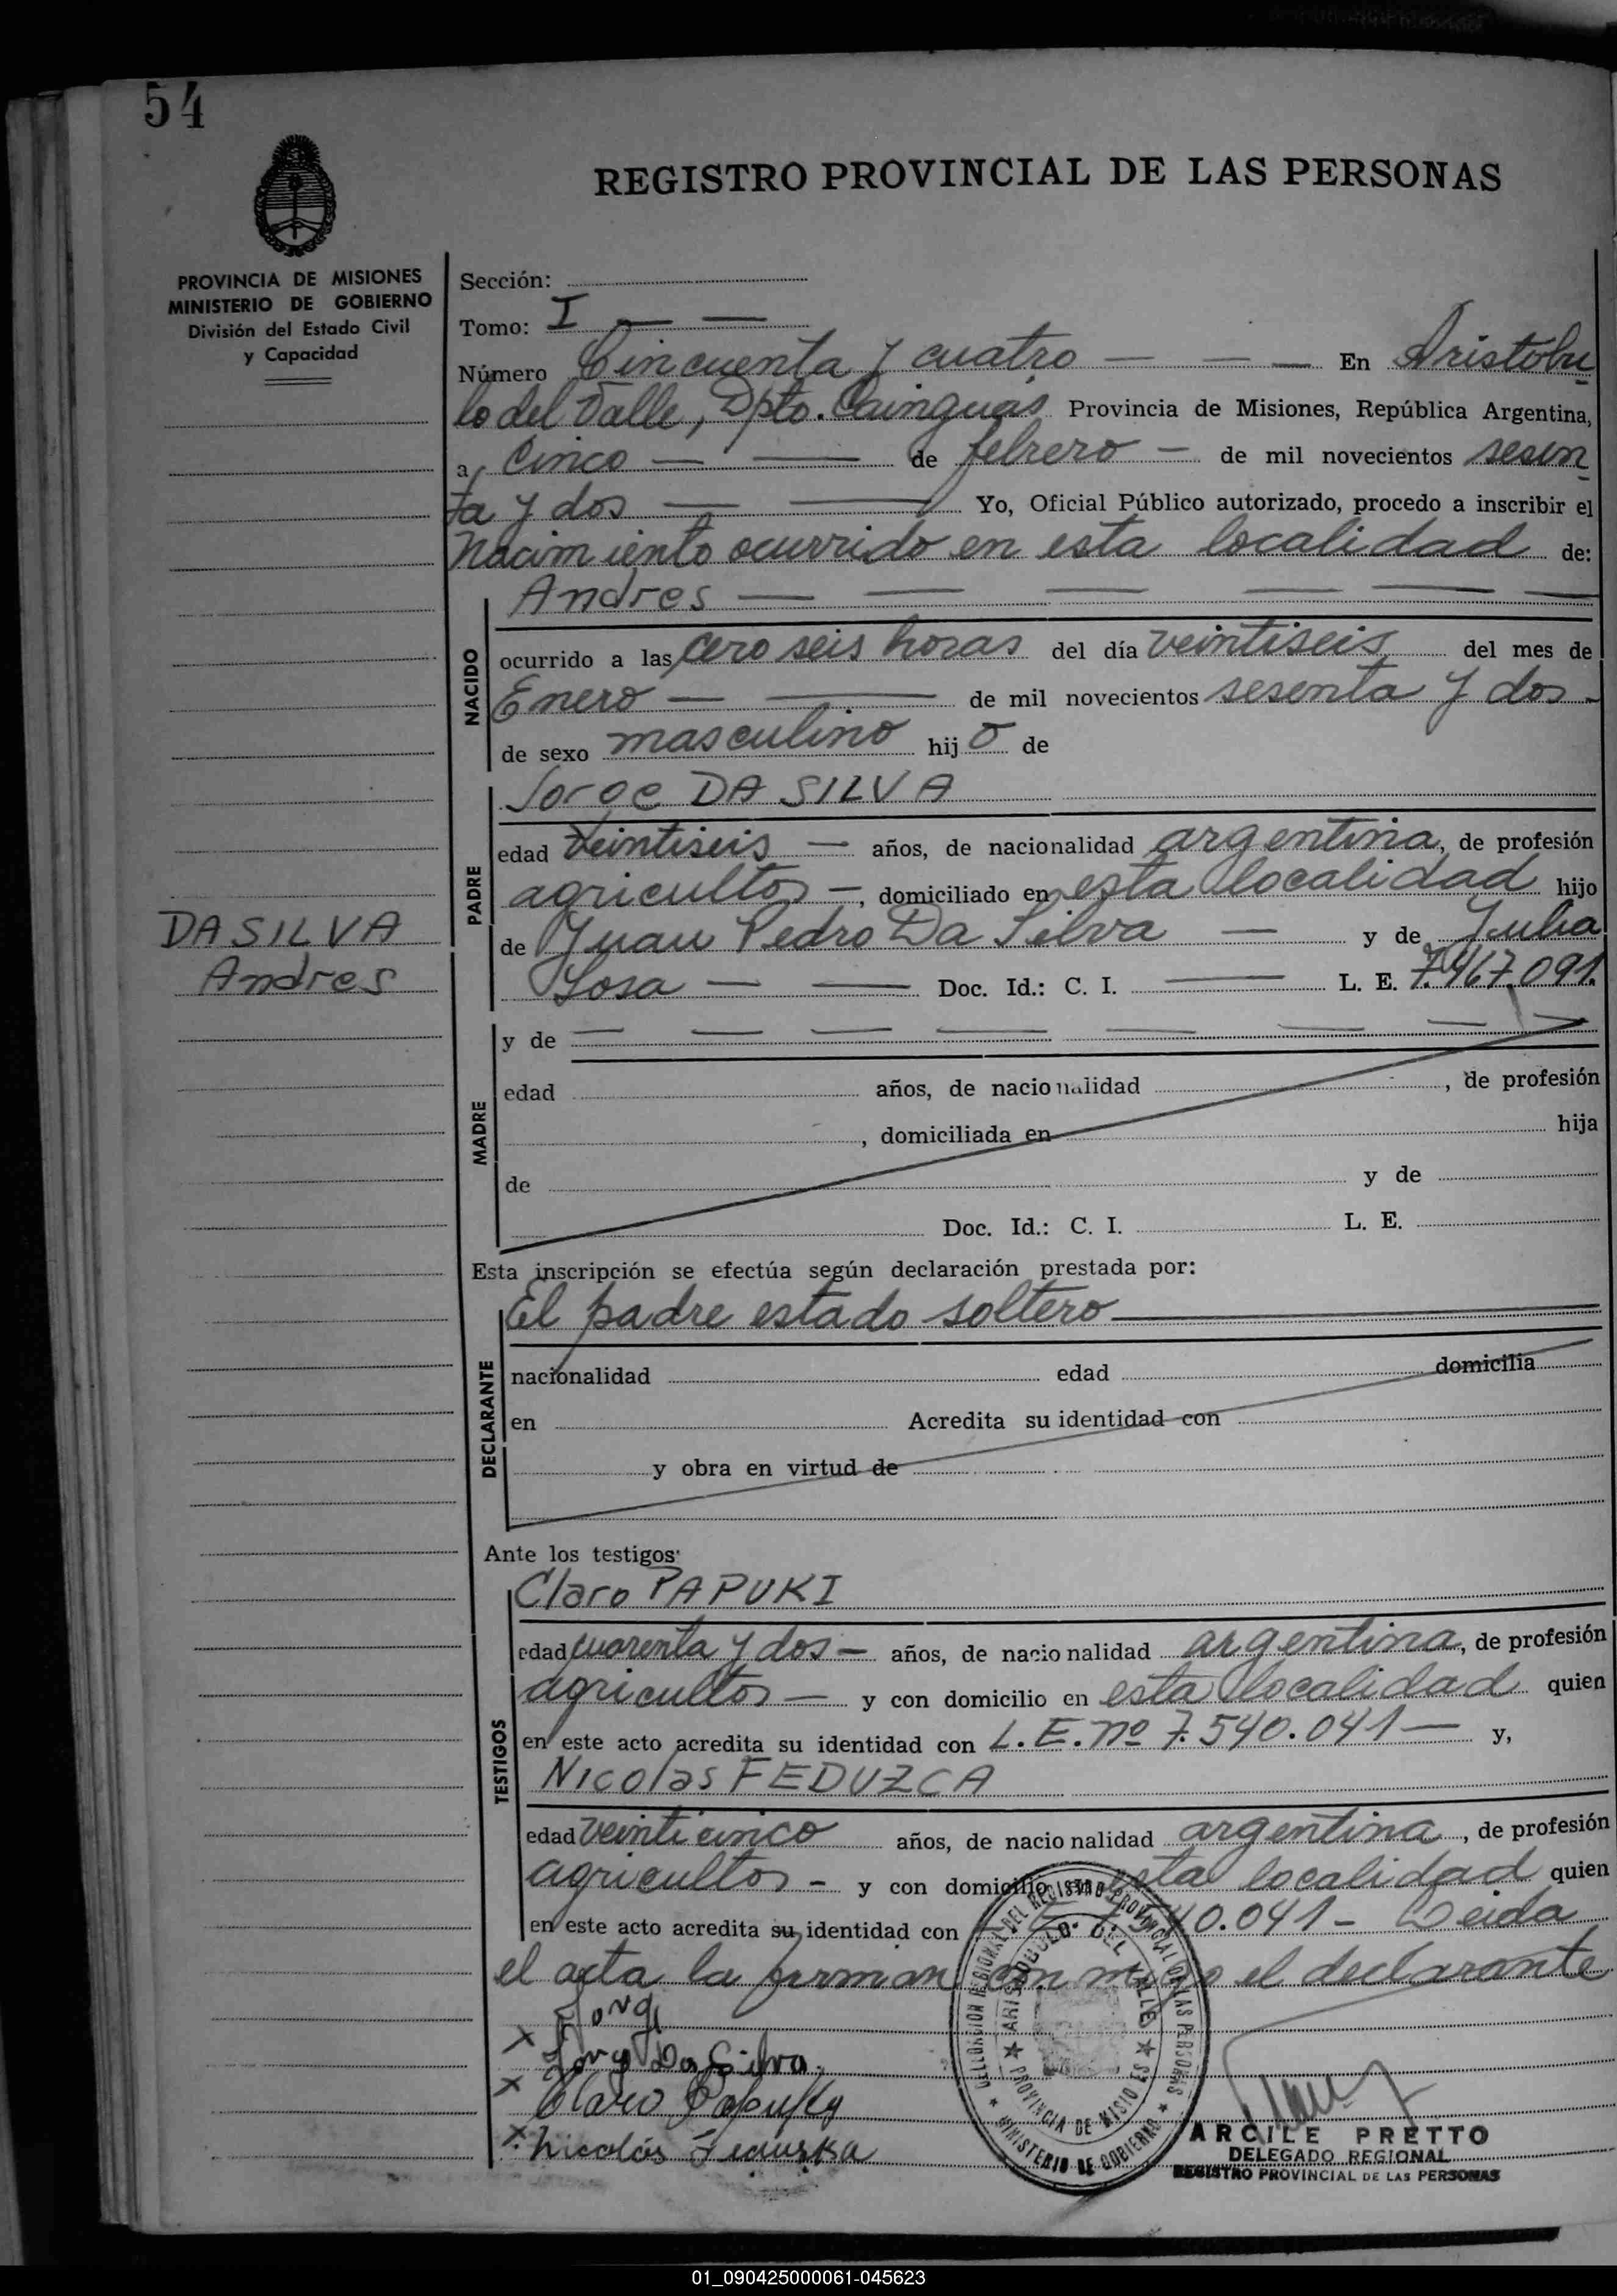 54
REGISTRO PROVINCIAL DE LAS PERSONAS
PROVINCIA DE MISIONES
MINISTERIO DE GOBIERNO
División del Estado Civil
y Capacidad
Sección:
Tomo: I
Número Cincuenta y cuatro — — — En Aristobu
lo del Valle, Dpto. Cainguas Provincia de Misiones, República Argentina,
a Cinco — — de febrero — de mil novecientos sesen
ta y dos — — Yo, Oficial Público autorizado, procedo a inscribir el
Nacimiento ocurrido en esta localidad de:
Andres — — — — — —
NACIDO
ocurrido a las cero seis horas del día veintiseis del mes de
Enero — — de mil novecientos sesenta y dos -
de sexo masculino hij o de
Jorge DA SILVA
PADRE
edad veintiseis — años, de nacionalidad argentina, de profesión
agricultor —, domiciliado en esta localidad hijo
de Juan Pedro Da Silva — y de Julia
Sosa — — Doc. Id.: C. I. — L. E. 7.467.091.
DA SILVA
Andres
MADRE
y de — — — — — — — —
edad años, de nacionalidad , de profesión
, domiciliada en hija
de y de
Doc. Id.: C. I. L. E.
Esta inscripción se efectúa según declaración prestada por:
El padre estado soltero
DECLARANTE
nacionalidad edad domicilia
en Acredita su identidad con
y obra en virtud de
Ante los testigos:
Claro PAPUKI
TESTIGOS
edad cuarenta y dos — años, de nacionalidad argentina, de profesión
agricultor — y con domicilio en esta localidad quien
en este acto acredita su identidad con L. E. nº 7.540.041 — y,
Nicolas FEDUZCA
edad veinticinco años, de nacionalidad argentina, de profesión
agricultor - y con domicilio en esta localidad quien
en este acto acredita su identidad con 40.041 - Leida
el acta la firman con migo el declarante
Jorg
x Jorge Da Silva
x Claro
x Nicolás
DELEGACION REGIONAL DEL REGISTRO PROVINCIAL DE LAS PERSONAS
MINISTERIO DE GOBIERNO
ARISTOBULO DEL VALLE
PROVINCIA DE MISIONES
ARCILE PRETTO
DELEGADO REGIONAL
REGISTRO PROVINCIAL DE LAS PERSONAS
01_090425000061-045623